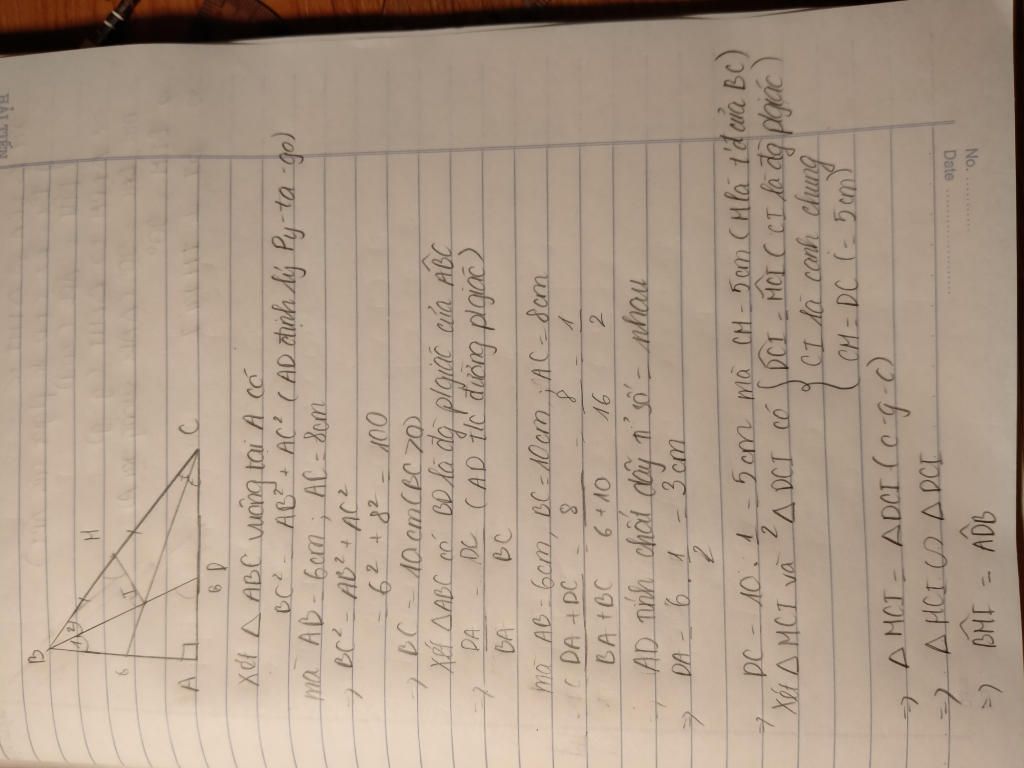 No. ............
Date ........................
B
M
I
6
A
8
D
C
Xét △ ABC vuông tại A có
BC² = AB² + AC² (AD định lý Py-ta-go)
mà AB = 6cm ; AC = 8cm
⇒ BC² = AB² + AC²
= 6² + 8² = 100
⇒ BC = 10cm (BC > 0)
Xét △ABC có BD là đg p/giác của ABC
⇒ DA/BA = DC/BC (AD t/c đường p/giác)
mà AB = 6cm, BC = 10cm ; AC = 8cm
DA + DC / BA + BC = 8 / 6 + 10 = 8/16 = 1/2
⇒ AD tính chất dãy tỉ số = nhau
⇒ DA = 6 . 1/2 = 3cm
⇒ DC = 10 . 1/2 = 5cm mà CM = 5cm (M là t'đ của BC)
Xét △ MCI và △ DCI có { DCI = MCI (CI là đg p/giác)
CI là cạnh chung
CM = DC (= 5cm)
⇒ △ MCI = △ DCI (c-g-c)
⇒ △ MCI ∽ △ DCI
⇒ BMI = ADB